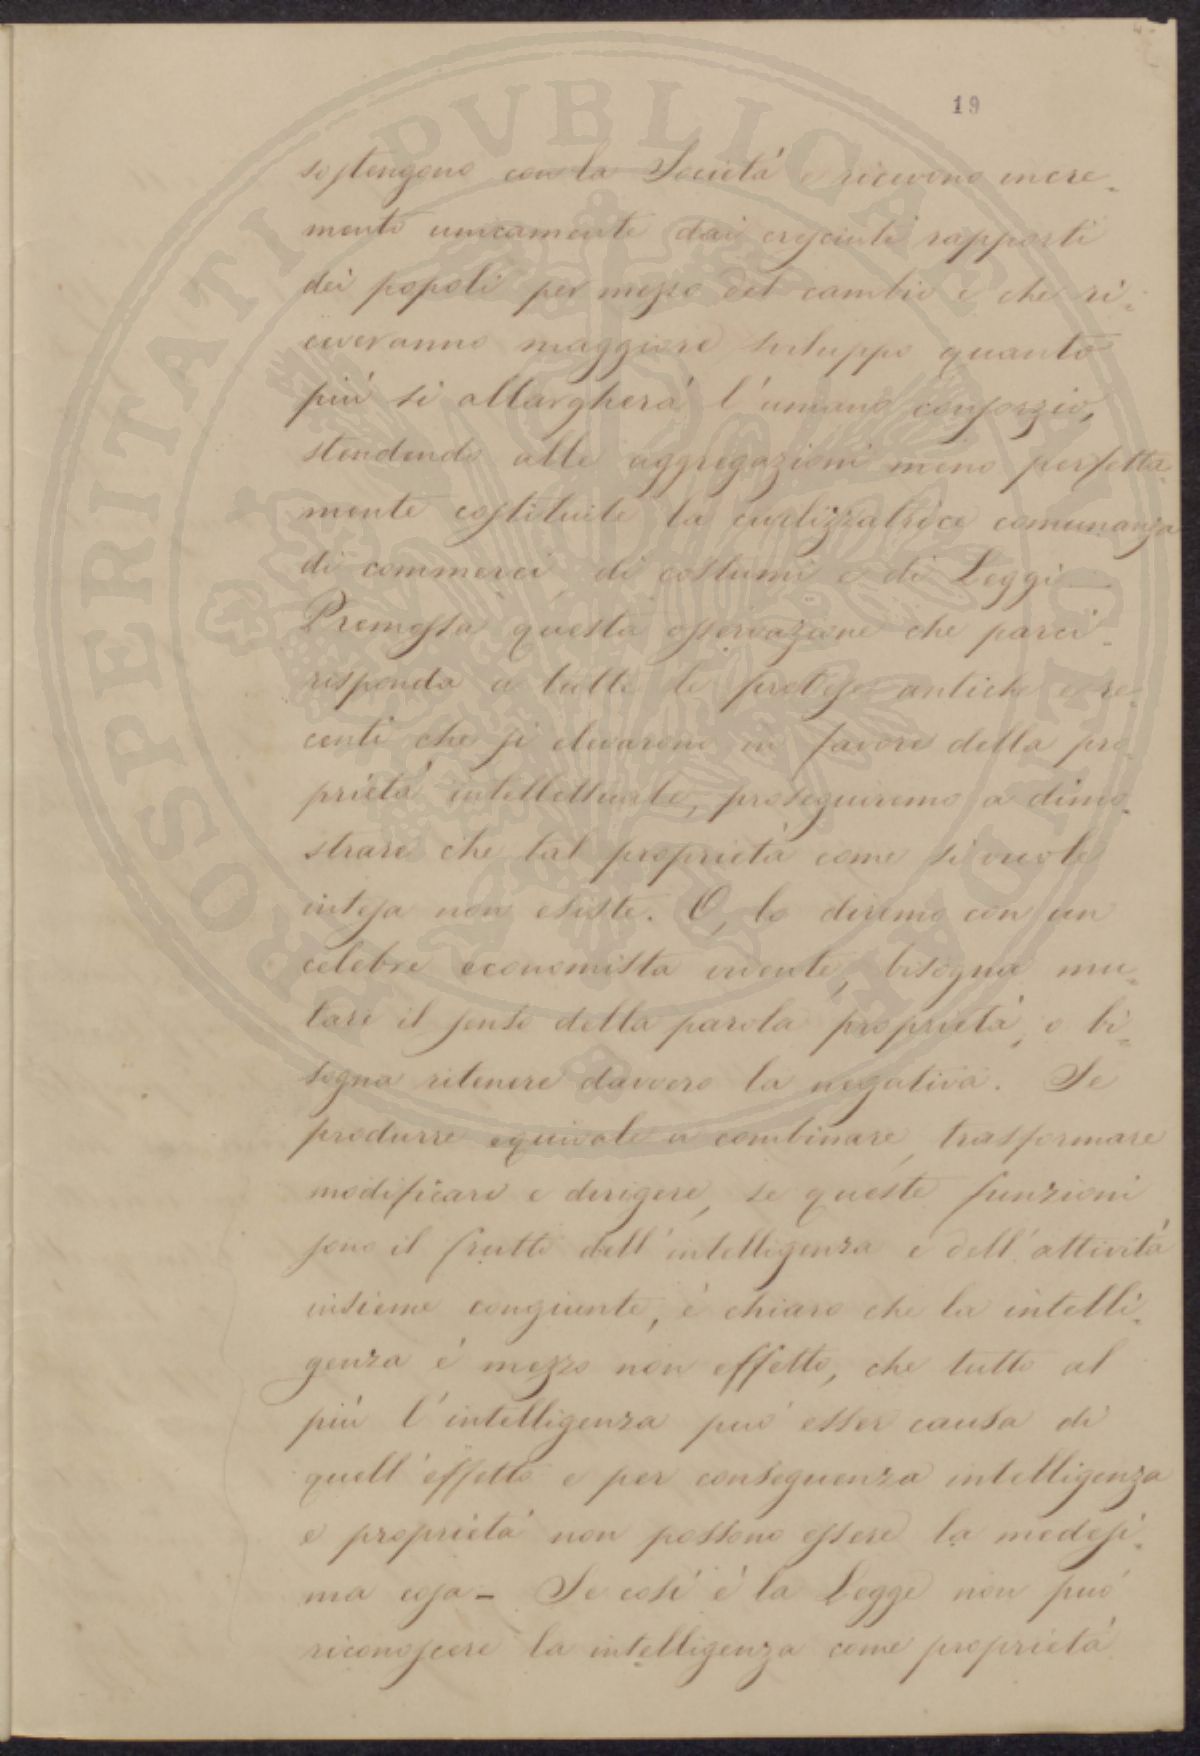 19
sostengono con la Società e ricevono incre-
mento unicamente dai cresciuti rapporti
dei popoli per mezzo del cambio e che ri-
ceveranno maggiore sviluppo quanto
più si allargherà l'umano consorzio,
stendendo alle aggregazioni meno perfetta-
mente costituite la civilizzatrice comunanza
di commerci, di costumi e di Leggi —
Premessa questa osservazione che parci
risponda a tutte le pretese antiche e re-
centi che si elevarono in favore della pro-
prietà intellettuale, proseguiremo a dimo-
strare che tal proprietà come si vuole
intesa non esiste. O, lo diremo con un
celebre economista vivente, bisogna mu-
tare il senso della parola proprietà, o bi-
sogna ritenere davvero la negativa. Se
produrre equivale a combinare, trasformare
modificare e dirigere, se queste funzioni
sono il frutto dell'intelligenza e dell'attività
insieme congiunte, è chiaro che la intelli-
genza è mezzo non effetto, che tutto al
più l'intelligenza può esser causa di
quell'effetto e per conseguenza intelligenza
e proprietà non possono essere la medesi-
ma cosa - Se così è la Legge non può
riconoscere la intelligenza come proprietà
PROSPERITATI PVBLICAE AVGENDAE